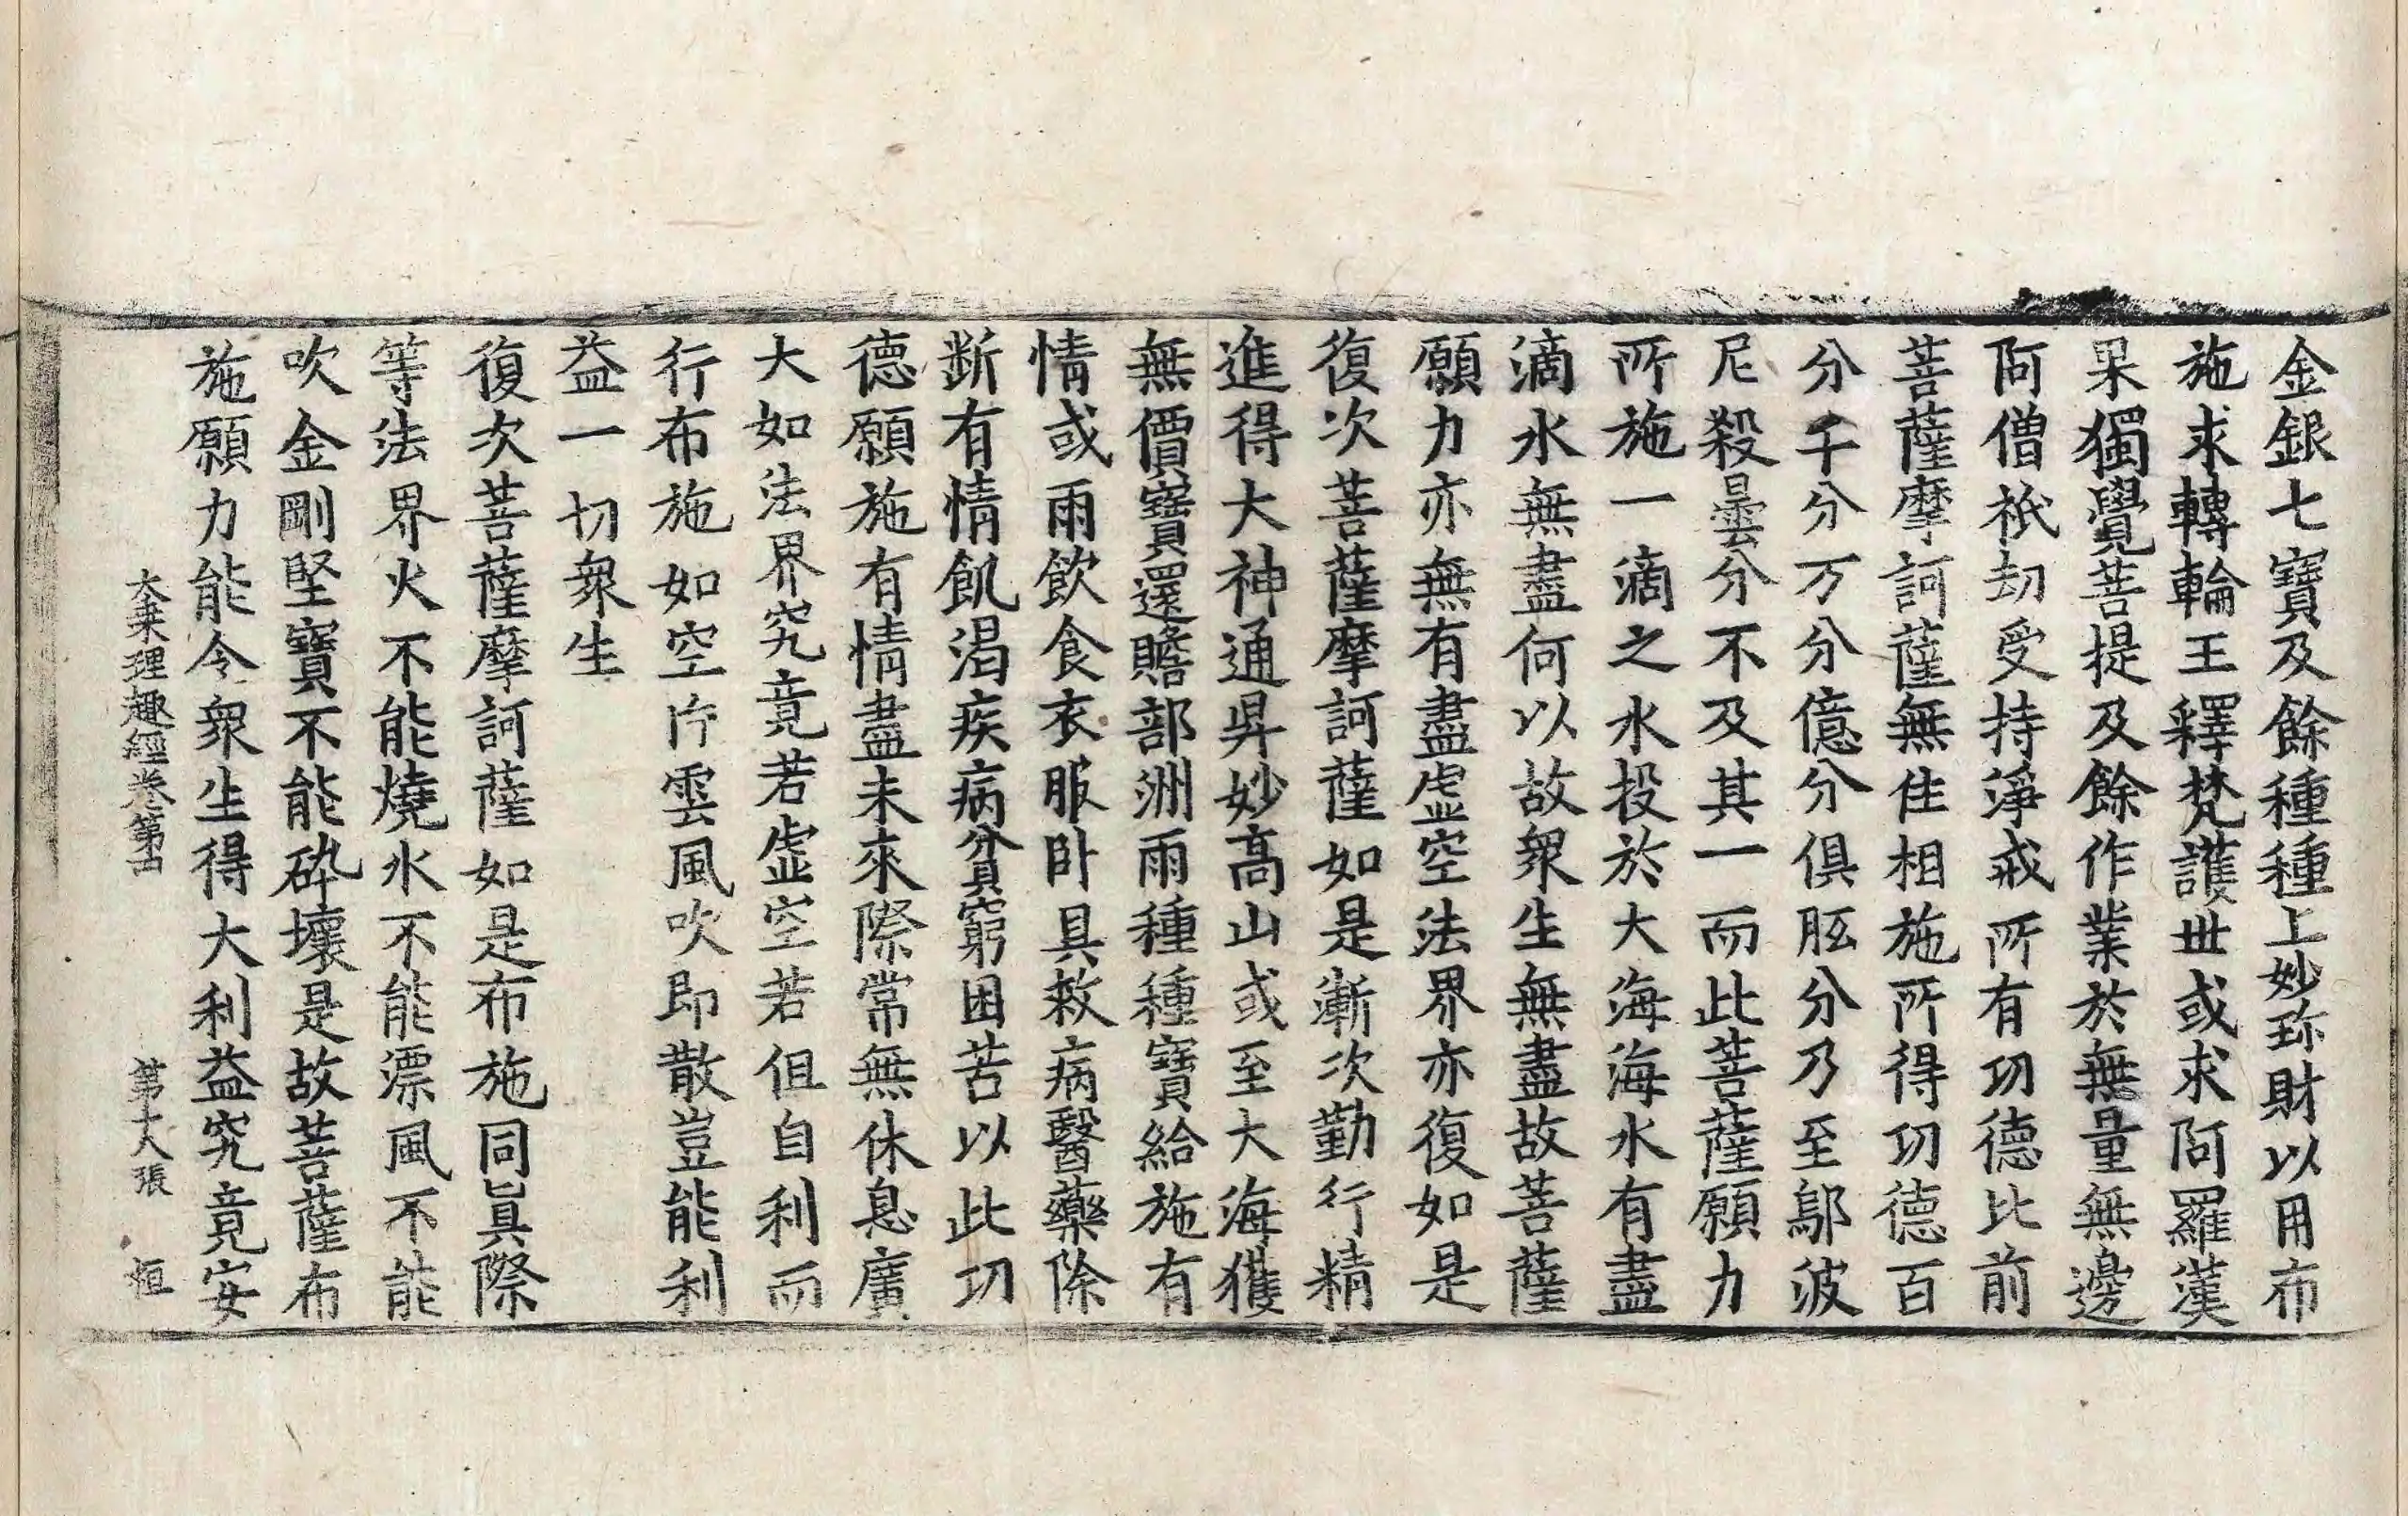 金銀七寶及餘種種上妙珎財以用布
施求轉輪王釋梵護世或求阿羅漢
果獨覺菩提及餘作業於無量無邊
阿僧祇劫受持淨戒所有功德比前
菩薩摩訶薩無住相施所得功德百
分千分万分億分俱胝分乃至鄔波
尼殺曇分不及其一而此菩薩願力
所施一滴之水投於大海海水有盡
滴水無盡何以故衆生無盡故菩薩
願力亦無有盡虛空法界亦復如是
復次菩薩摩訶薩如是漸次勤行精
進得大神通昇妙高山或至大海獲
無價寶還贍部洲雨種種寶給施有
情或雨飲食衣服卧具救病醫藥除
断有情飢渴疾病貧窮困苦以此功
德願施有情盡未來際常無休息廣
大如法界究竟若虛空若但自利而
行布施如空片雲風吹即散豈能利
益一切衆生
復次菩薩摩訶薩如是布施同眞際
等法界火不能燒水不能漂風不能
吹金剛堅寶不能碎壞是故菩薩布
施願力能令衆生得大利益究竟安
大乗理趣經卷第四 第十八張 恒